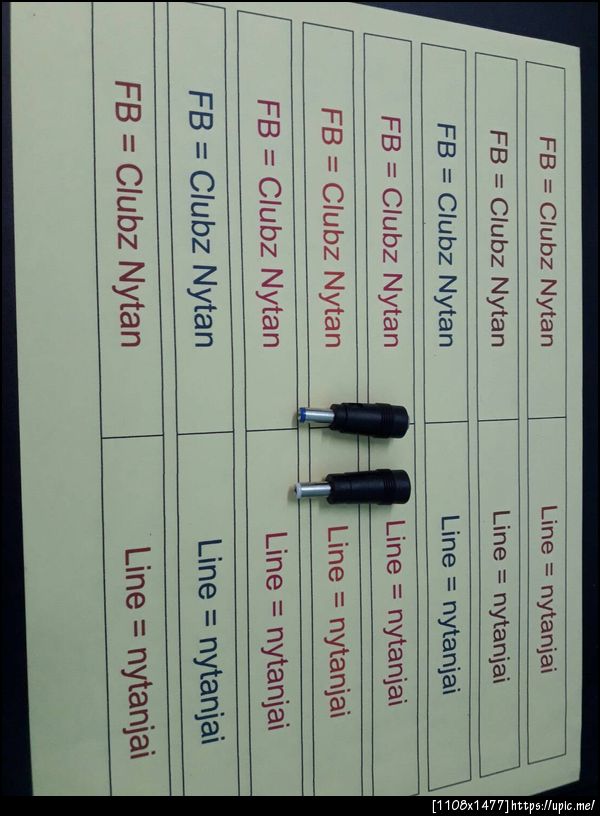 FB = Clubz Nytan Line = nytanjai
FB = Clubz Nytan Line = nytanjai
FB = Clubz Nytan Line = nytanjai
FB = Clubz Nytan Line = nytanjai
FB = Clubz Nytan Line = nytanjai
FB = Clubz Nytan Line = nytanjai
FB = Clubz Nytan Line = nytanjai
FB = Clubz Nytan Line = nytanjai
[1108x1477]https://upic.me/